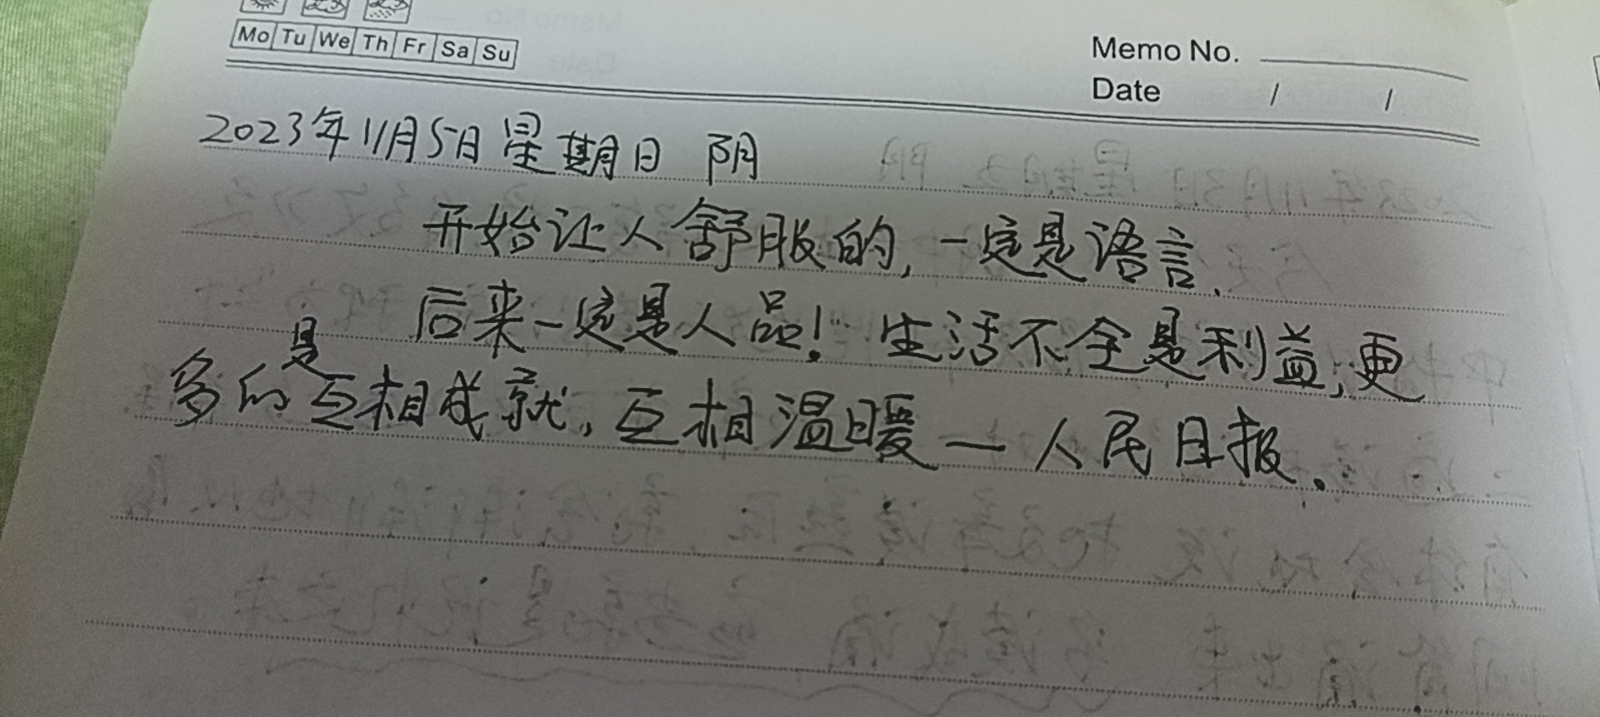 Mo Tu We Th Fr Sa Su
Memo No.
Date / /
2023年11月5日 星期日 阴
开始让人舒服的,一定是语言.
后来一定是人品! 生活不全是利益,更
多的是互相成就,互相温暖—人民日报.